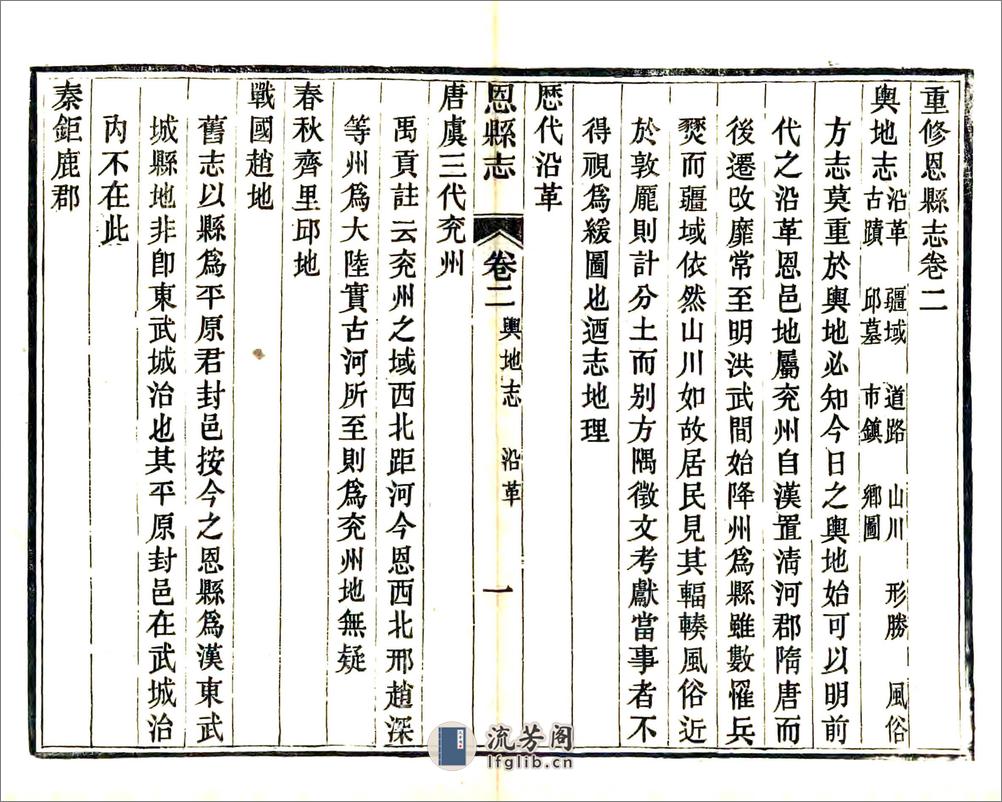 重修恩縣志卷二
輿地志 沿革 疆域 道路 山川 形勝 風俗
古蹟 邱墓 市鎮 鄉圖
方志莫重於輿地必知今日之輿地始可以明前
代之沿革恩邑地屬兗州自漢置清河郡隋唐而
後遷改靡常至明洪武間始降州爲縣雖數罹兵
燹而疆域依然山川如故居民見其輻輳風俗近
於敦龐則計分土而別方隅徵文考獻當事者不
得視爲緩圖也迺志地理
歷代沿革
恩縣志 卷二 輿地志 沿革 一
唐虞三代兗州
禹貢註云兗州之域西北距河今恩西北邢趙深
等州爲大陸實古河所至則爲兗州地無疑
春秋齊里邱地
戰國趙地
舊志以縣爲平原君封邑按今之恩縣爲漢東武
城縣地非卽東武城治也其平原封邑在武城治
內不在此
秦鉅鹿郡
流芳阁
lfglib.cn